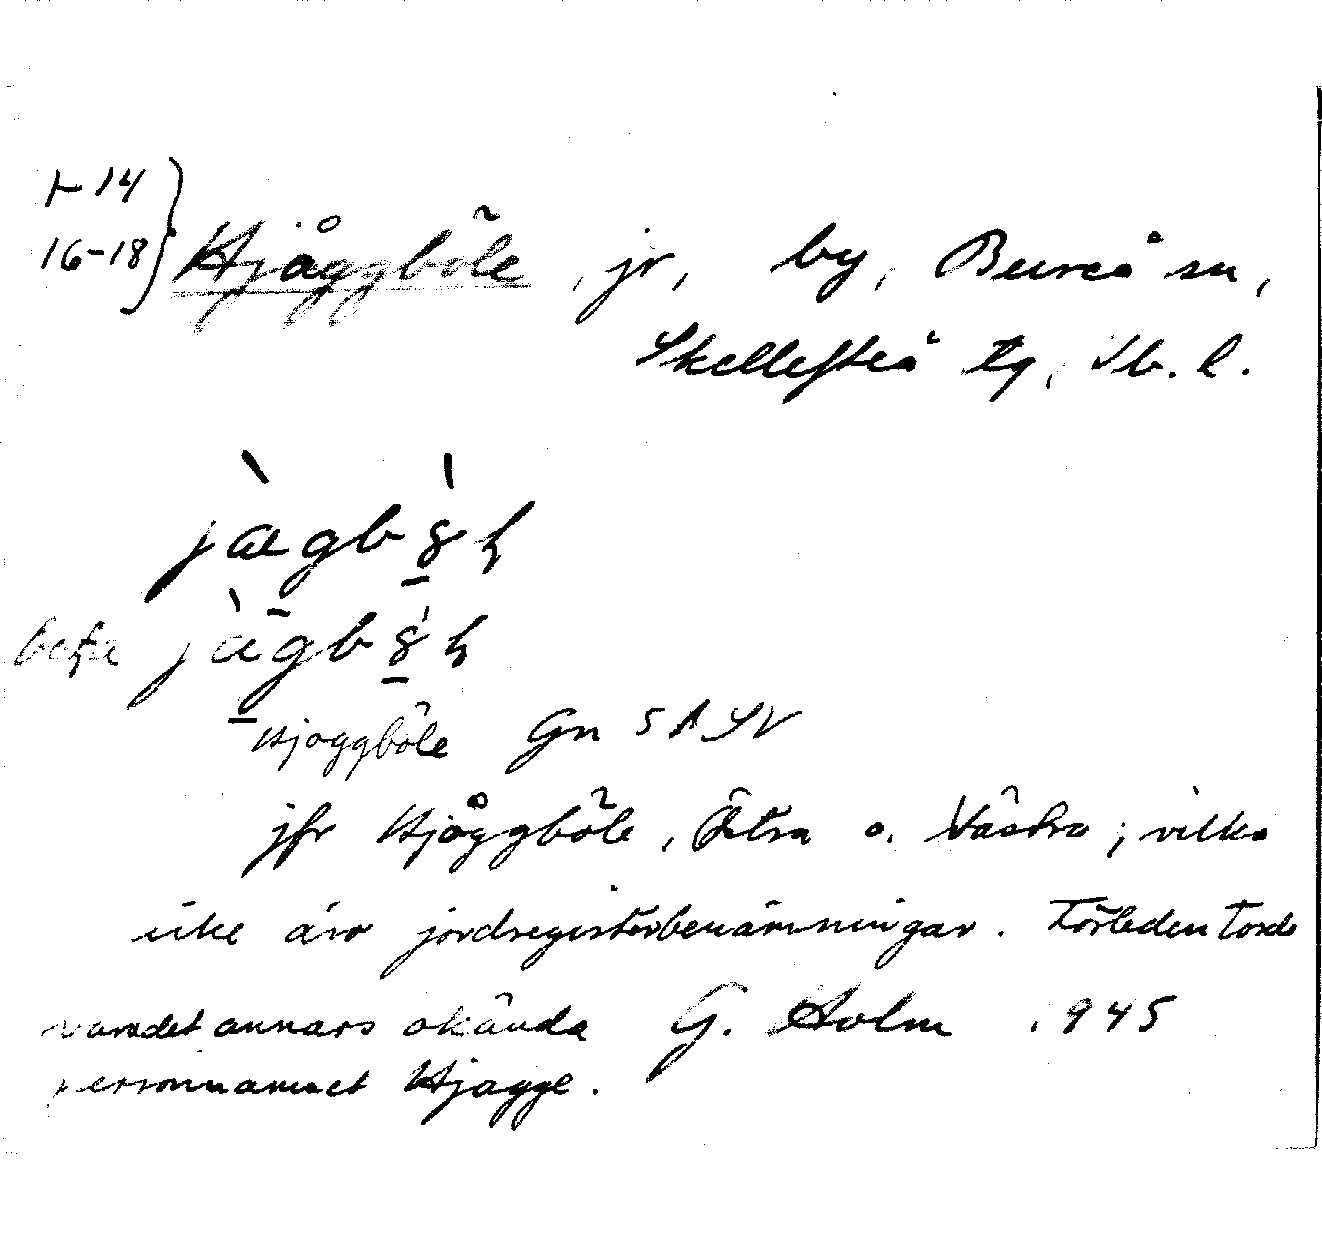 1-14
16-18} Hjåggböle, jr, by, Bureå sn,
Skellefteå tg, Vb. l.
jàgb
jàgb
Hjoggböle Gn 5 A SV
jfr Hjåggböle, Östra o. Västra, vilka
icke äro jordregisterbenämningar. Förleden torde
vara det annars okända G. Holm 1945
personnamnet Hjagge.